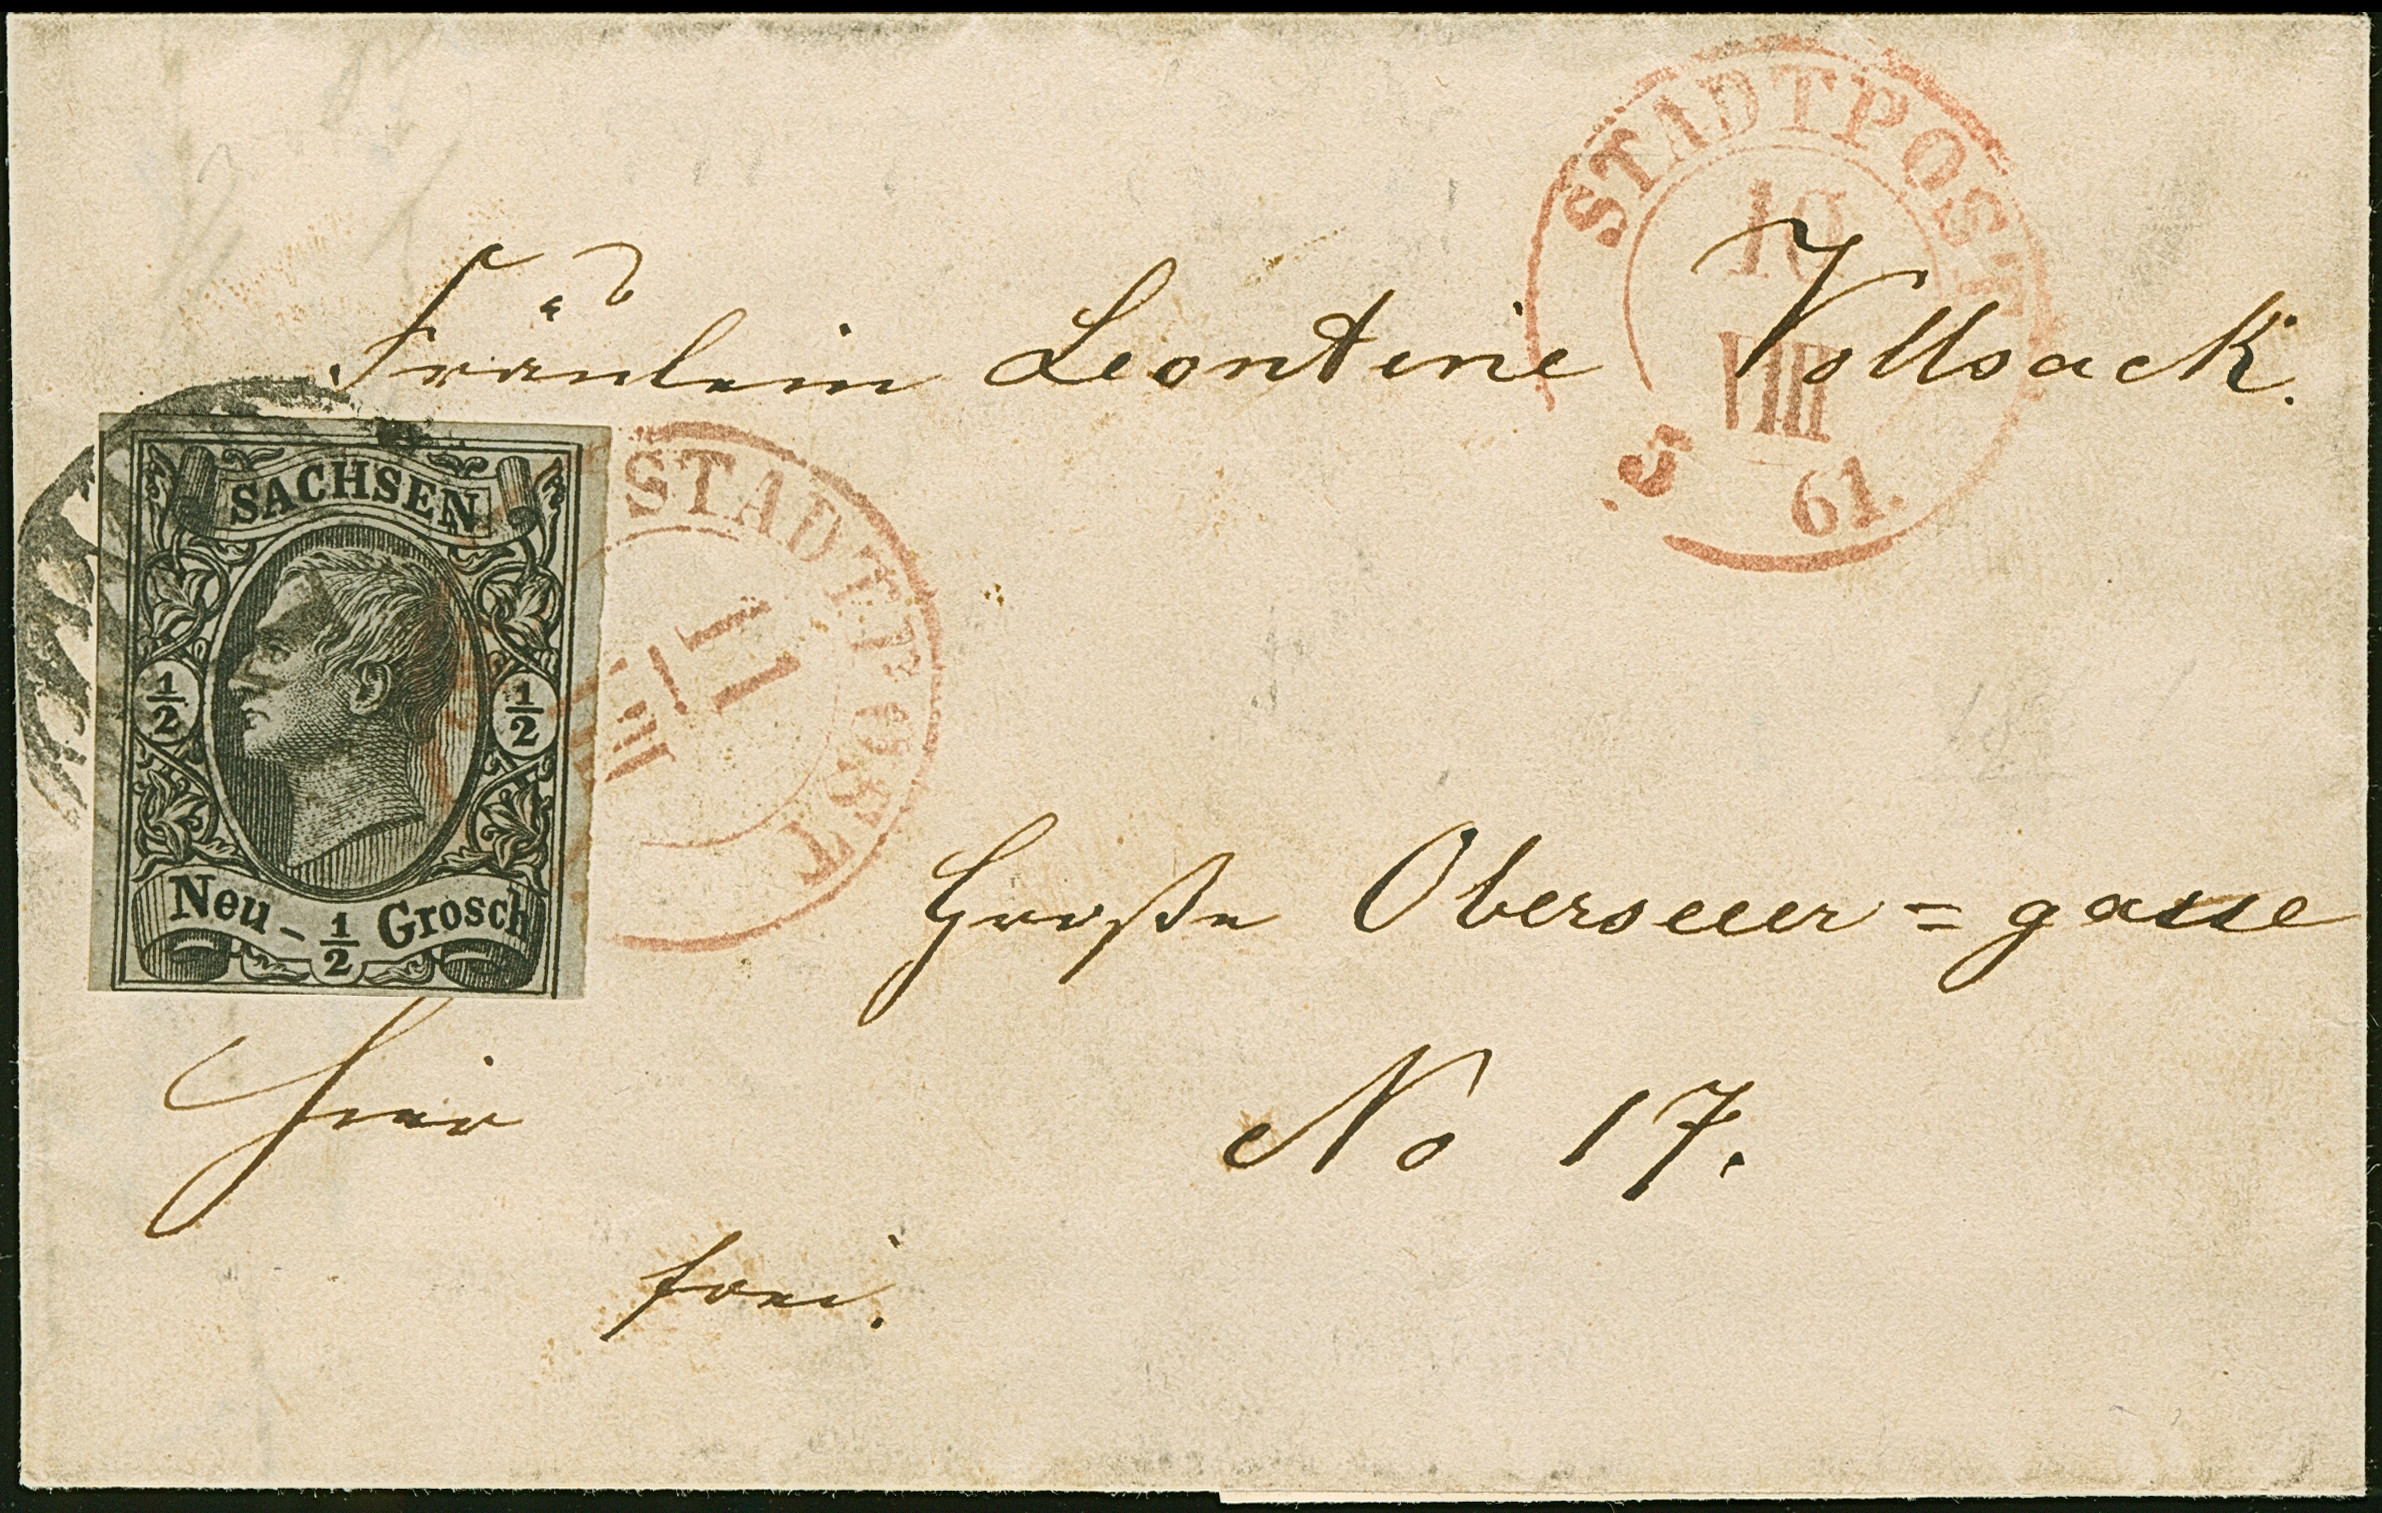 STADTPOST
10
VIII
5 61.
Fräulein Leontine Vollsack.
SACHSEN
½ ½
Neu-½Grosch
STADTPOST
11
VIII
Große Oberseeer=gasse
Hier No 17.
frei.